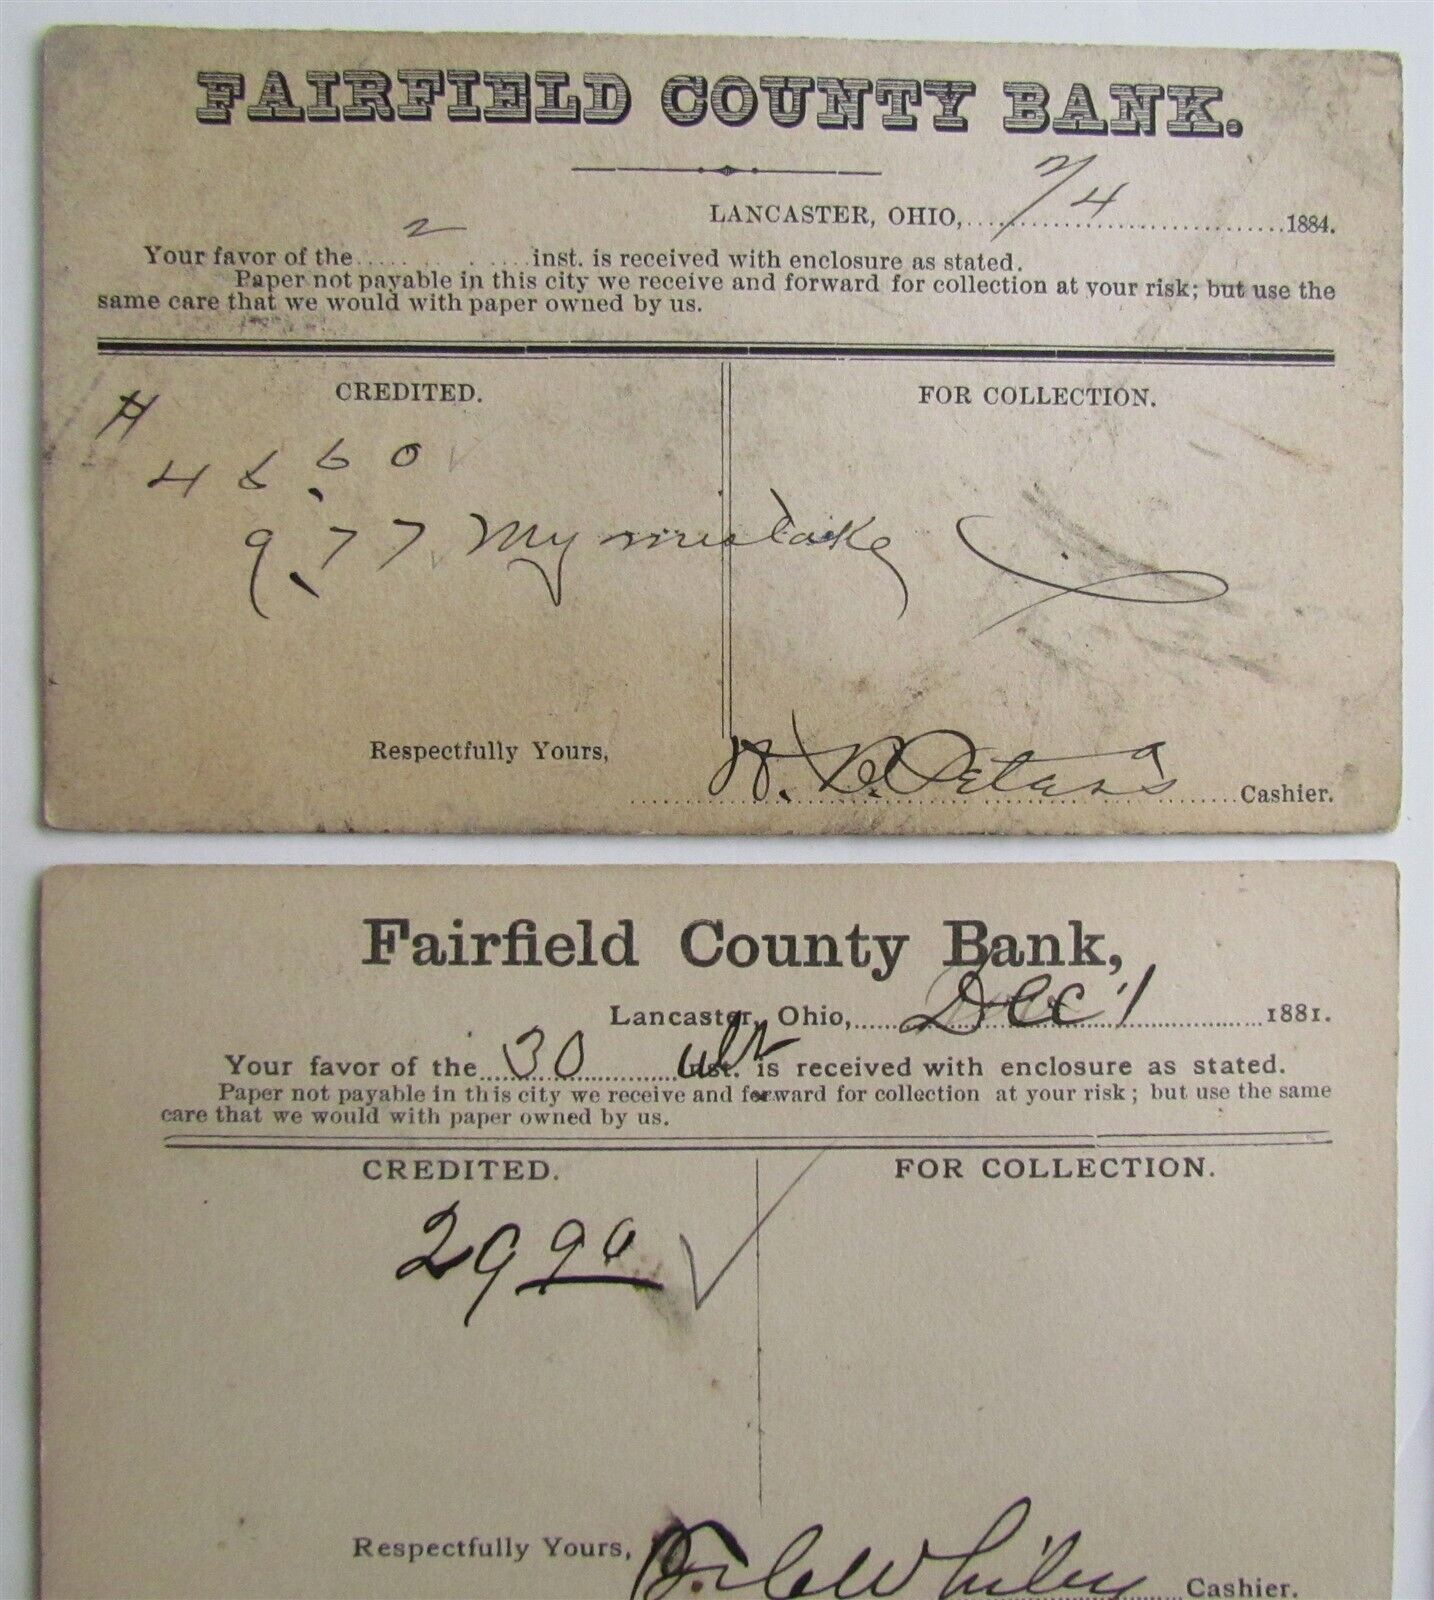 FAIRFIELD COUNTY BANK.
LANCASTER, OHIO, 7/4 1884.
Your favor of the 2 inst. is received with enclosure as stated.
Paper not payable in this city we receive and forward for collection at your risk; but use the
same care that we would with paper owned by us.
CREDITED. FOR COLLECTION.
#
46.60
9.77 My mistake
Respectfully Yours,
Peters Cashier.
Fairfield County Bank,
Lancaster, Ohio, Dec 1 1881.
Your favor of the 30 ult inst. is received with enclosure as stated.
Paper not payable in this city we receive and forward for collection at your risk; but use the same
care that we would with paper owned by us.
CREDITED. FOR COLLECTION.
29 90
Respectfully Yours,
Whiley Cashier.